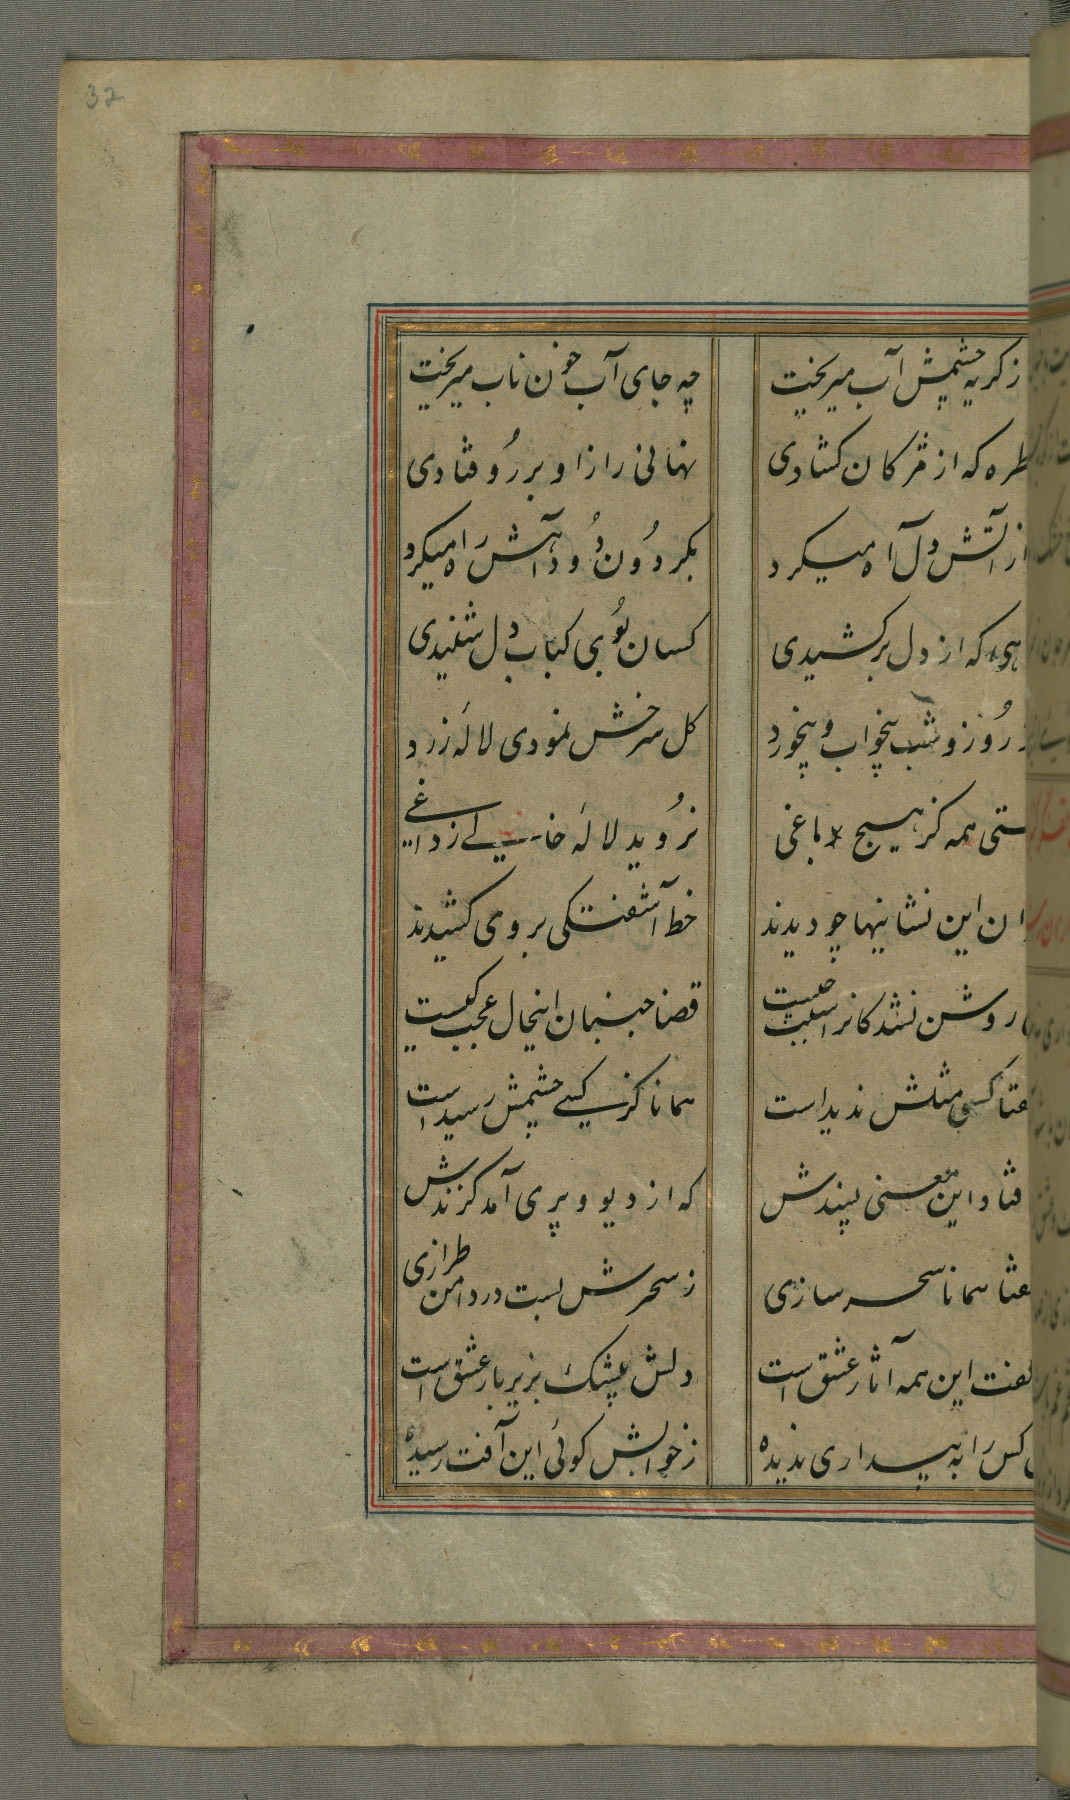 32
ز کریه چشمش آب میریخت چه جای آب خون ناب میریخت
که از مژکان کشادی نهانی راز او بر رو فتادی
از آتش دل آه میکرد بکردون دود آهش راه میکرد
که از دل برکشیدی کسان بوی کباب دل شنیدی
روز و شب بیخواب و بیخورد کل سرخش نمودی لالهٔ زرد
همه کز هیچ باغی نروید لالهٔ خالی ز داغی
این نشانیها چو دیدند خط آشفتکی بر وی کشیدند
روشن نشد کانرا سبب چیست قضا جنبان اینحال عجب کیست
کسی مثلش ندیداست همانا کز کسی چشمش رسیداست
فتاد این معنی پسندش که از دیو و پری آمد کزندش
همانا سحر سازی ز سحرش بست در دامن طرازی
این همه آثار عشق است دلش بیشک بزیر بار عشق است
کس را به بیداری ندیده ز خوابش کوئی این آفت رسیده